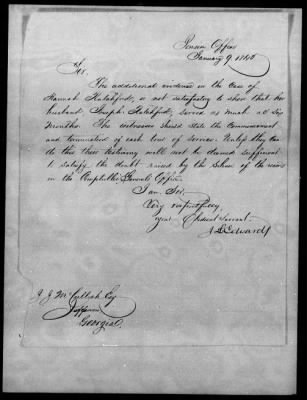 Pension Office
January 9. 1845
Sir.
The additional evidence in the Case of
Hannah Hatchford, is not satisfactory to show that her
husband, Joseph Hatchford, served as much as Six
months. The witnesses should state the Commencement
and termination of each tour of Service. Unless they can
do this their testimony will not be deemed sufficient
to satisfy the doubt raised by the silence of the
in the Comptroller General's Office.
I am. Sir,
Very respectfully,
your Obedient Servant
J L Edwards
J J McCulloh Esq
Jefferson
Georgia.